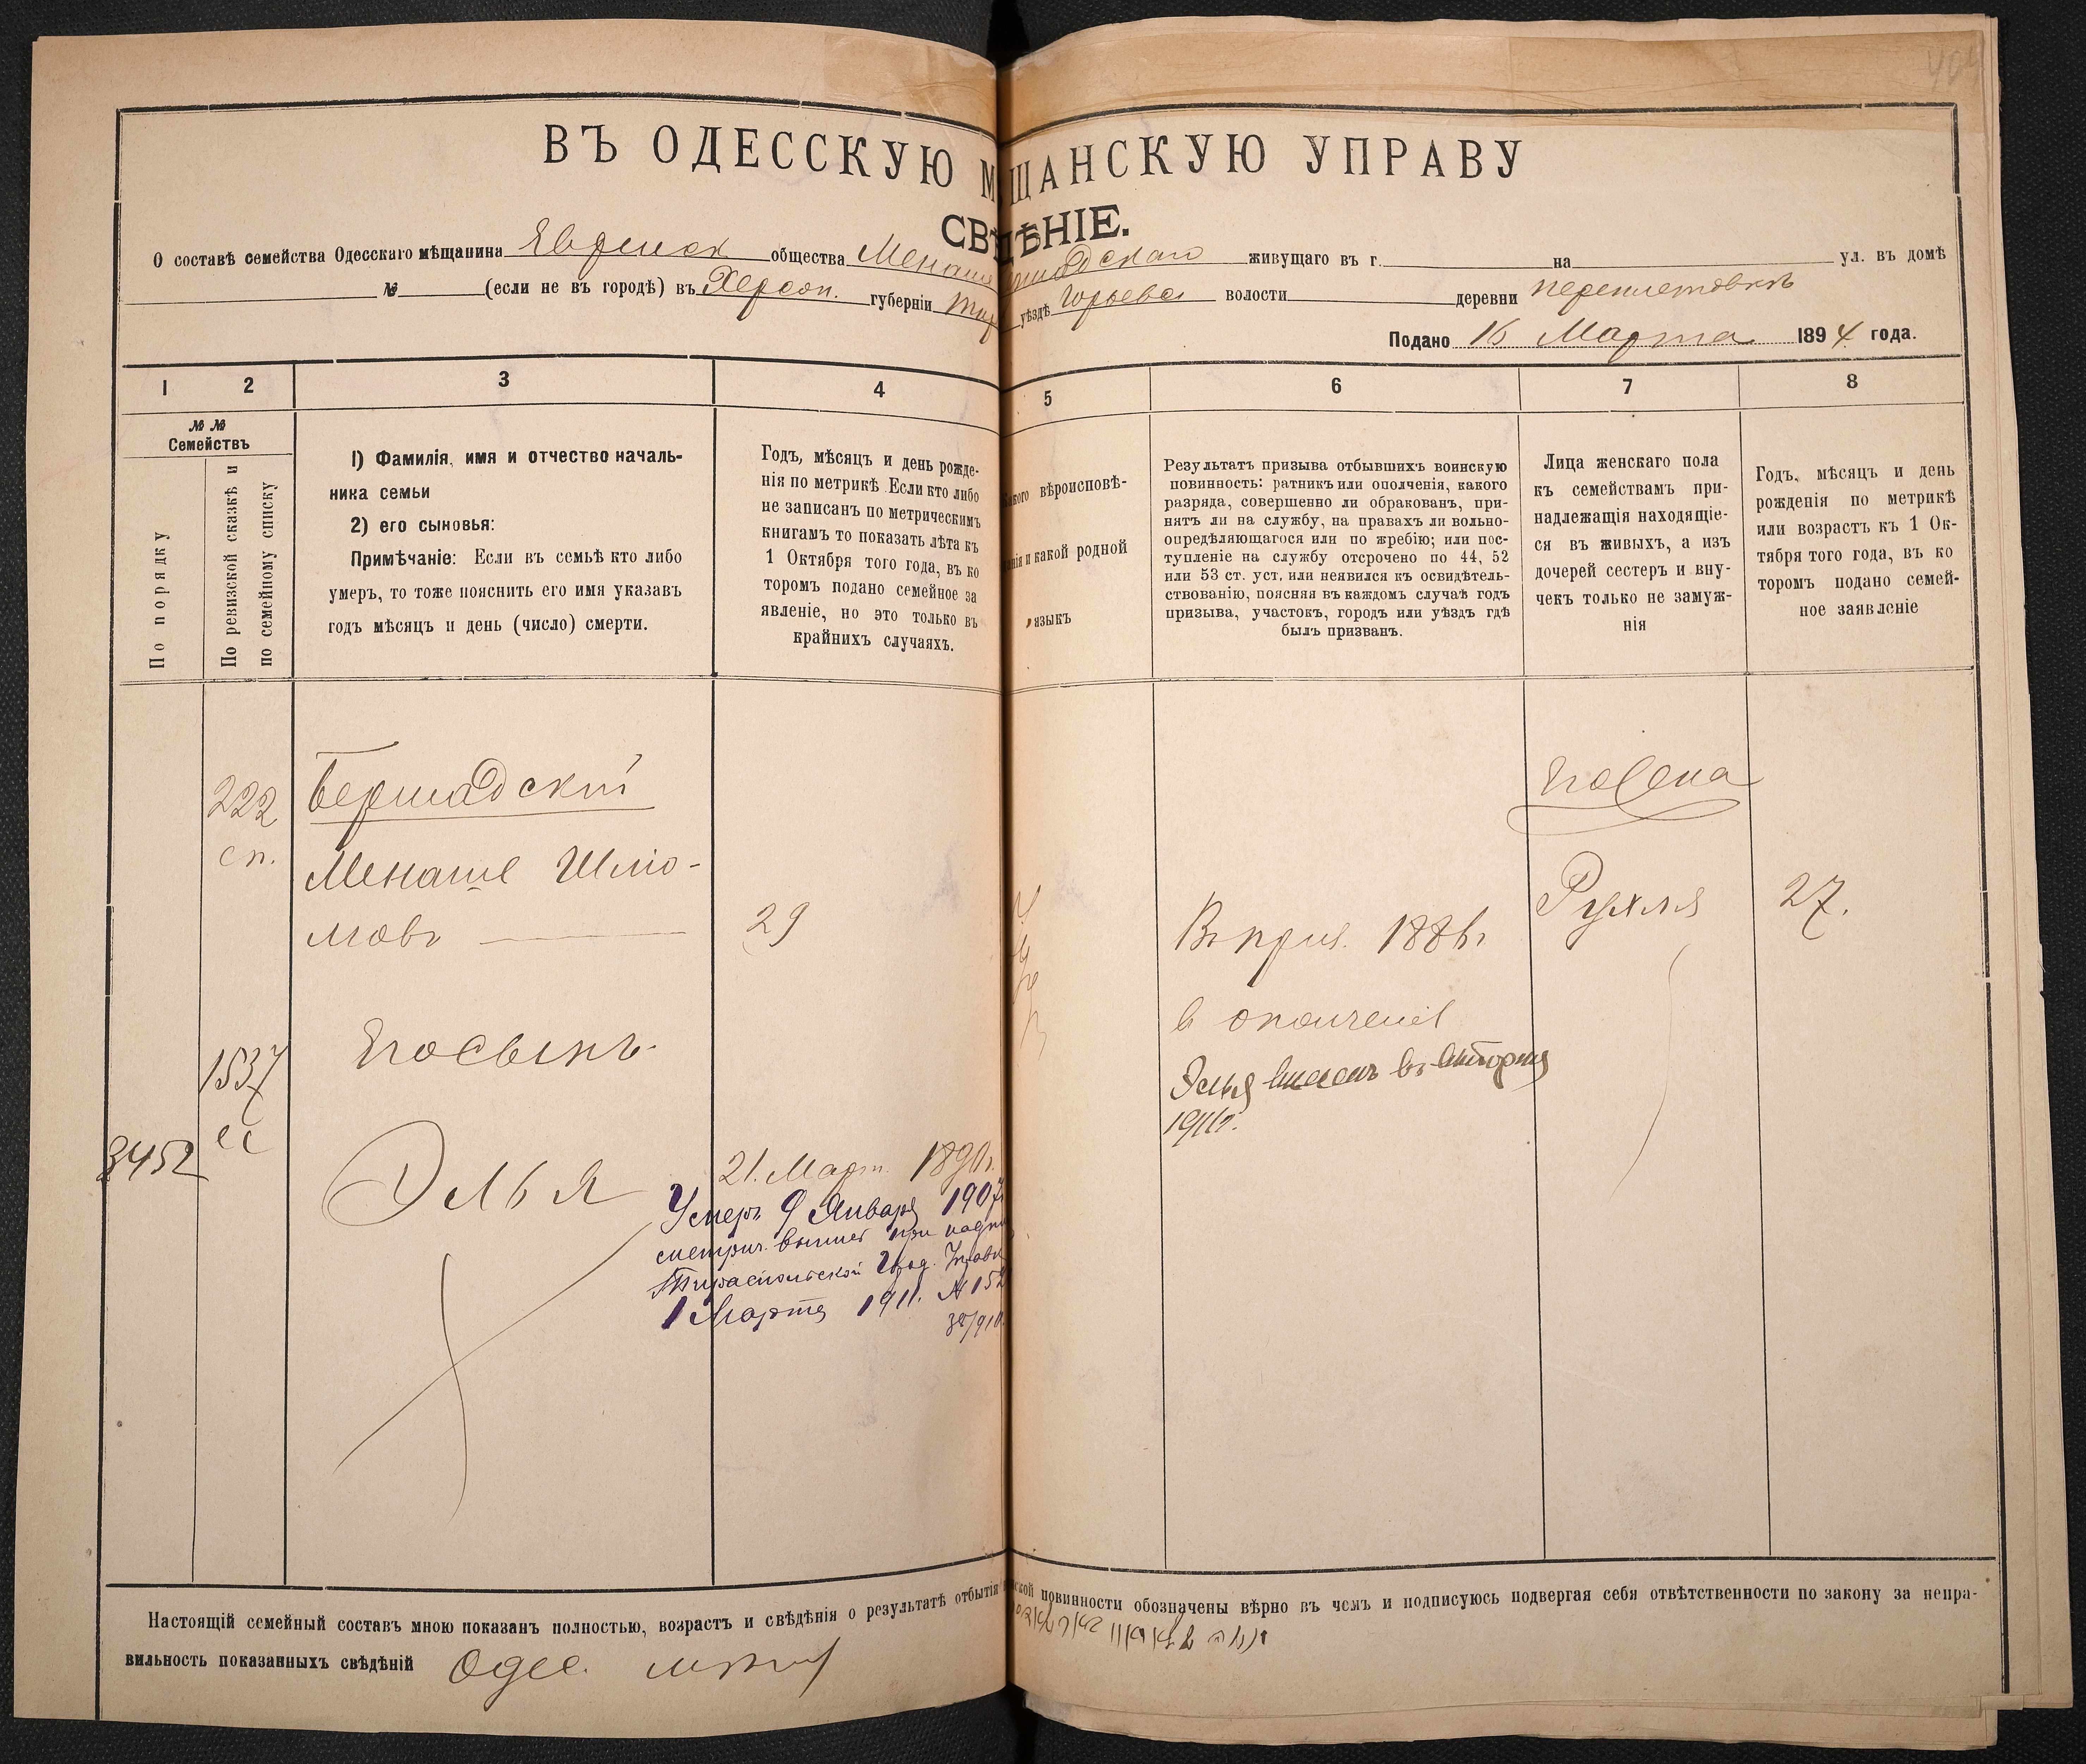 ВЪ ОДЕССКУЮ М ЩАНСКУЮ УПРАВУ
СВѢДѢНІЕ.
О составѣ семейства Одесскаго мѣщанина Еврейск общества Менаше Бершадскаго живущаго въ г. на ул. въ домѣ
№ (если не въ городѣ) въ Херсон. губерніи Тир уѣздѣ волости деревни
Подано 16 Марта 1894 года.
1 2 3 4 5 6 7 8
№№ Семействъ
По порядку
По ревизской сказкѣ и по семейному списку
1) Фамилія, имя и отчество началь-
ника семьи
2) его сыновья:
Примѣчаніе: Если въ семьѣ кто либо
умеръ, то тоже пояснить его имя указавъ
годъ мѣсяцъ и день (число) смерти.
Годъ, мѣсяцъ и день рожде-
нія по метрикѣ Если кто либо
не записанъ по метрическимъ
книгамъ то показать лѣта къ
1 Октября того года, въ ко
торомъ подано семейное за
явленіе, но это только въ
крайнихъ случаяхъ.
Какого вѣроисповѣ-
анія и какой родной
языкъ
Результатъ призыва отбывшихъ воинскую
повинность: ратникъ или ополченія, какого
разряда, совершенно ли обракованъ, при-
нятъ ли на службу, на правахъ ли вольно-
опредѣляющагося или по жребію; или пос-
тупленіе на службу отсрочено по 44, 52
или 53 ст. уст. или неявился къ освидѣтель-
ствованію, поясняя въ каждомъ случаѣ годъ
призыва, участокъ, городъ или уѣздъ гдѣ
былъ призванъ.
Лица женскаго пола
къ семействамъ при-
надлежащія находящіе-
ся въ живыхъ, а изъ
дочерей сестеръ и вну-
чекъ только не замуж-
нія
Годъ, мѣсяцъ и день
рожденія по метрикѣ
или возрастъ къ 1 Ок-
тября того года, въ ко
торомъ подано семей-
ное заявленіе
222
сп.
Бершадскій
Менаше Шлио-
мовъ
29
Въ приз. 1886г
в ополченіе
Его Жена
Рухля
27.
1537
сс
Его Сынъ
Элья 1911г.
3452
Элья
21. Март. 1890г.
Умеръ 9 Января 1907
метрич. при
Тираспольской Город. Управ
1 Марта 1911. № 152
38/910
Настоящій семейный составъ мною показанъ полностью, возрастъ и свѣдѣнія о результатѣ отбытія ской повинности обозначены вѣрно въ чемъ и подписуюсь подвергая себя отвѣтственности по закону за непра-
вильность показанныхъ свѣдѣній Одес.